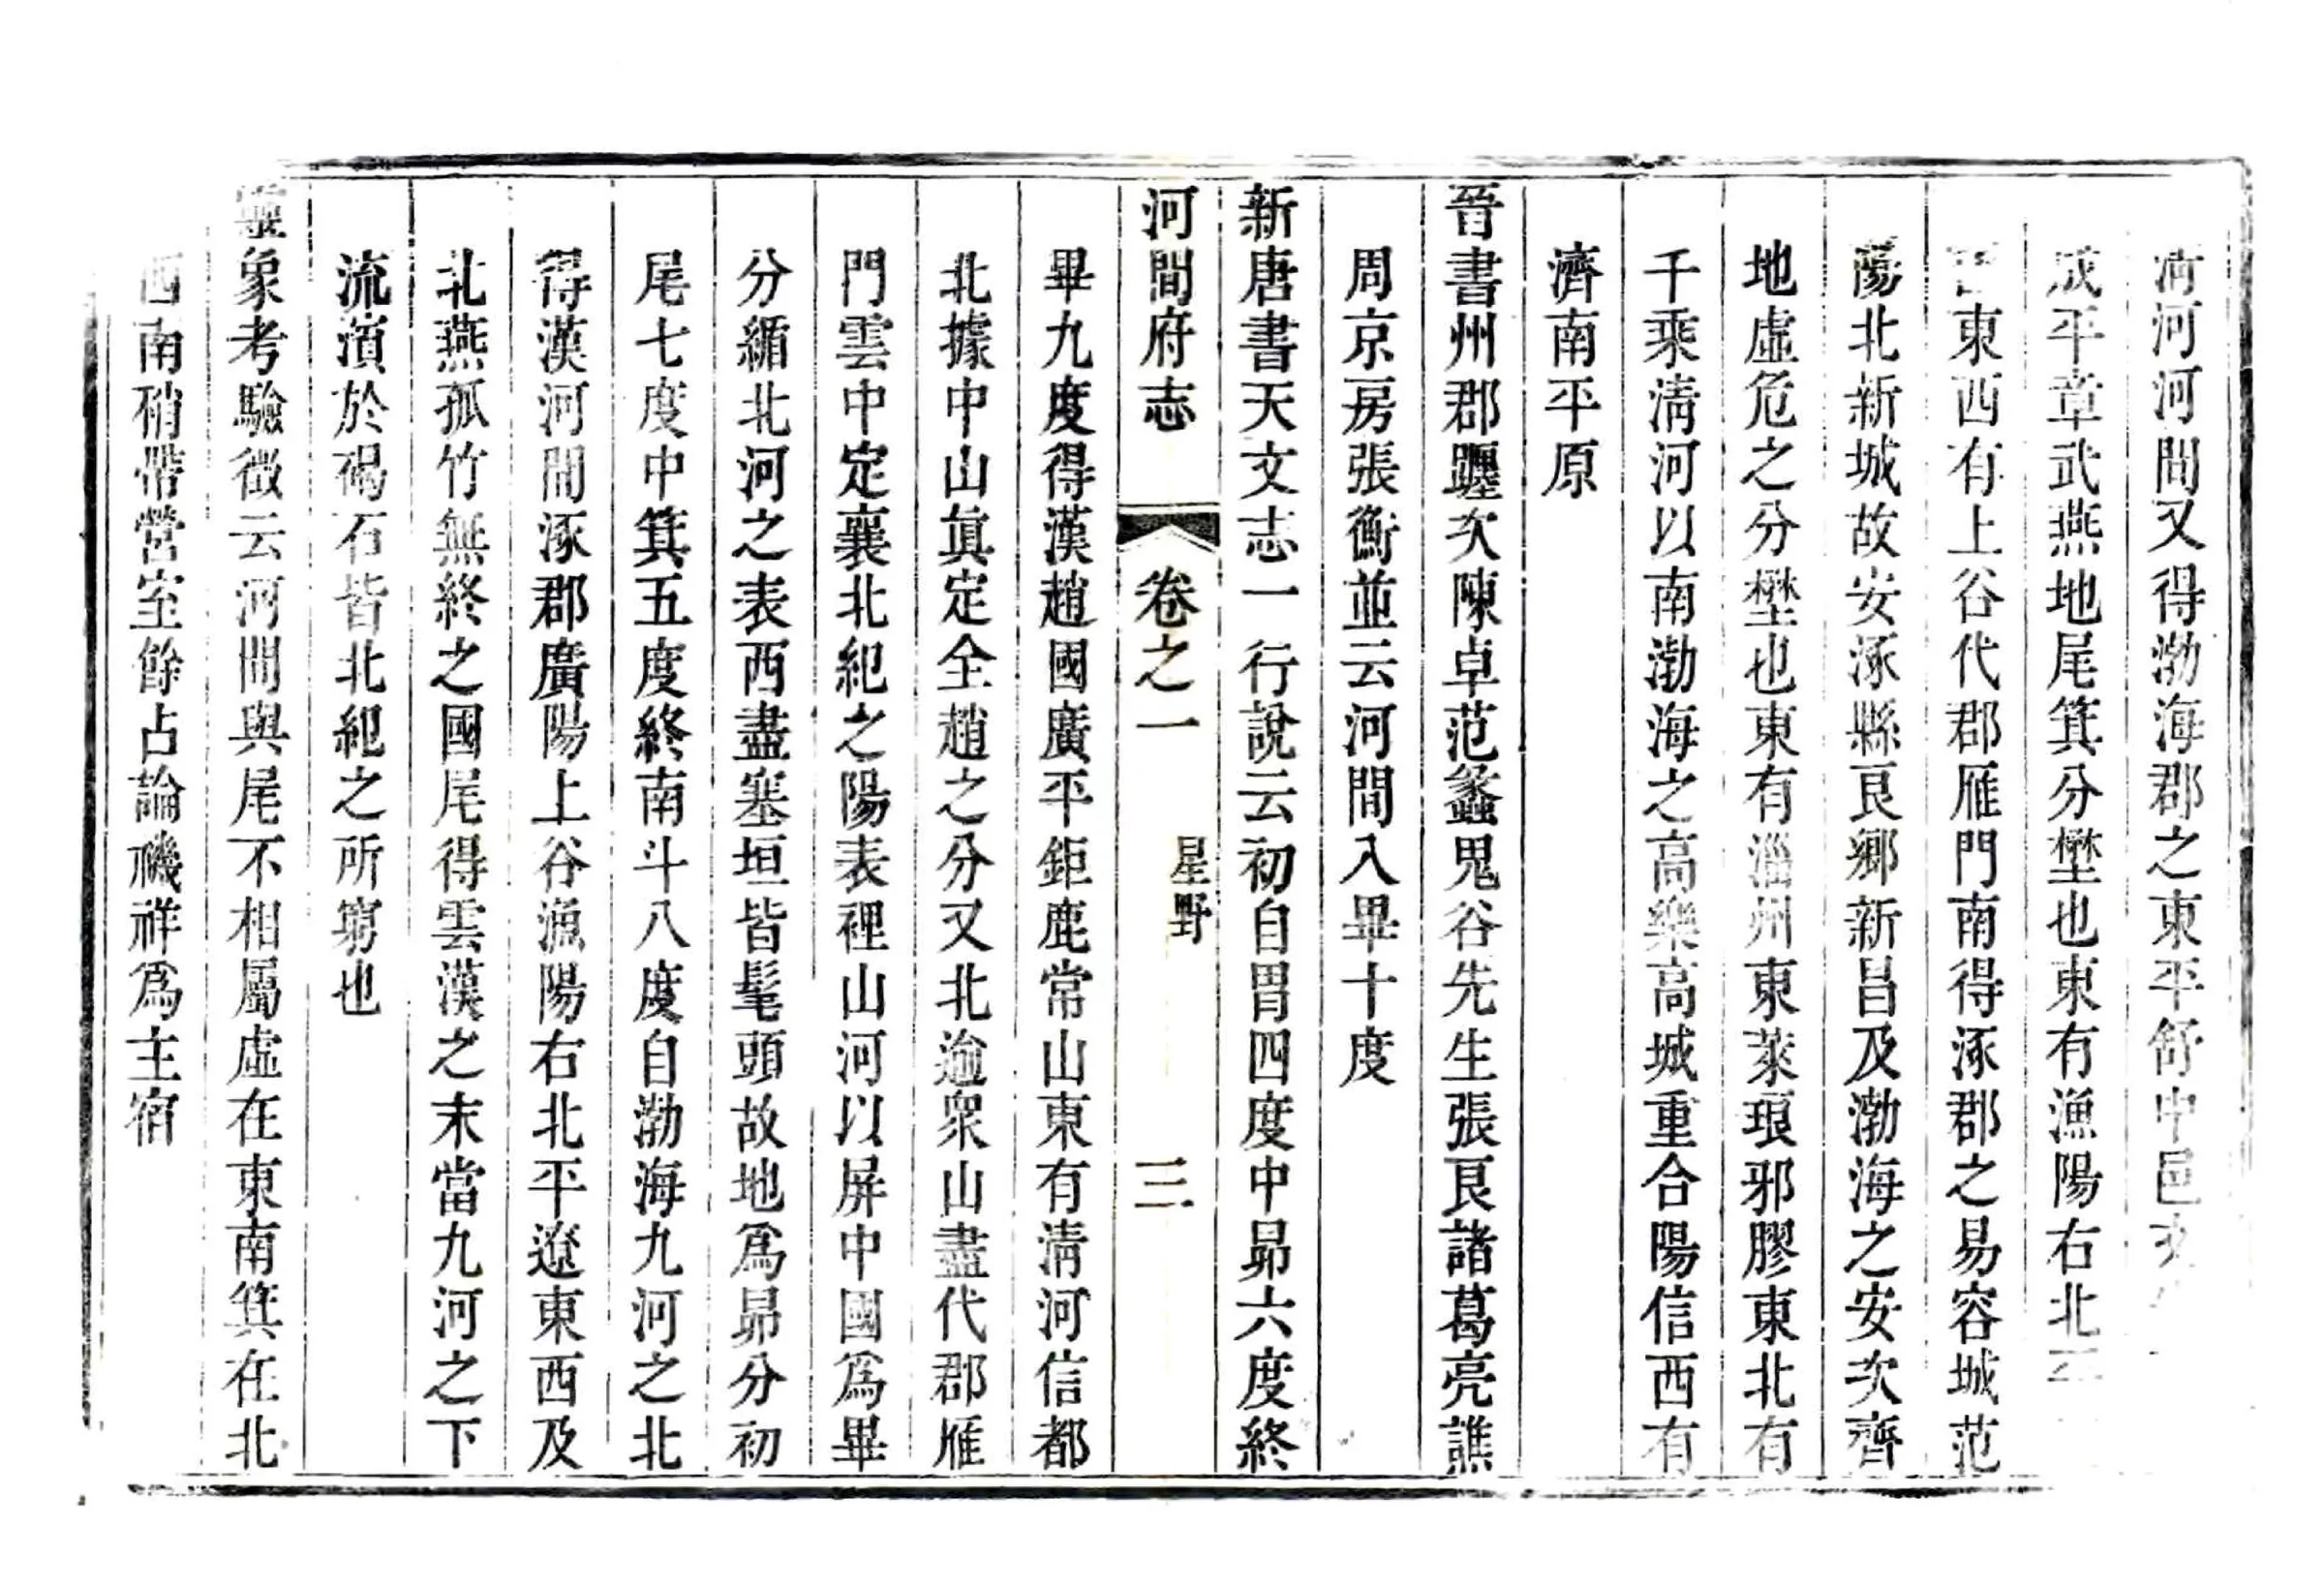 河河間又得渤海郡之東平舒中邑
成平章武燕地尾箕分壄也東有漁陽右北平
東西有上谷代郡雁門南得涿郡之易容城范
陽北新城故安涿縣良鄉新昌及渤海之安次齊
地虛危之分壄也東有淄州東萊琅邪膠東北有
千乘清河以南渤海之高樂高城重合陽信西有
濟南平原
晉書州郡躔次陳卓范蠡鬼谷先生張良諸葛亮譙
周京房張衡並云河間入畢十度
新唐書天文志一行說云初自胃四度中昴六度終
河間府志 卷之一 星野 三
畢九度得漢趙國廣平鉅鹿常山東有清河信都
北據中山真定全趙之分又北逾眾山盡代郡雁
門雲中定襄北紀之陽表裡山河以屏中國為畢
分循北河之表西盡塞垣皆髦頭故地為昴分初
尾七度中箕五度終南斗八度自渤海九河之北
得漢河間涿郡廣陽上谷漁陽右北平遼東西及
北燕孤竹無終之國尾得雲漢之末當九河之下
流濱於碣石皆北紀之所窮也
靈象考驗徵云河間與尾不相屬虛在東南箕在北
西南稍帶營室餘占論禨祥為主宿